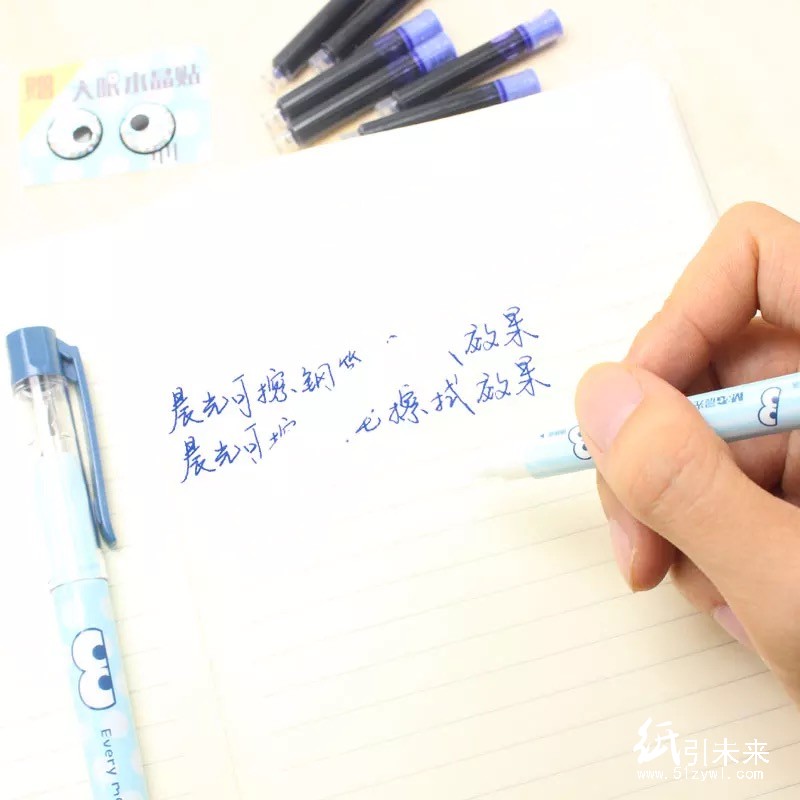 赠 大眼水晶贴
晨光可擦钢 效果
晨光可 擦拭效果
M&G晨光
Every mo
纸引未来
www.51zywl.com